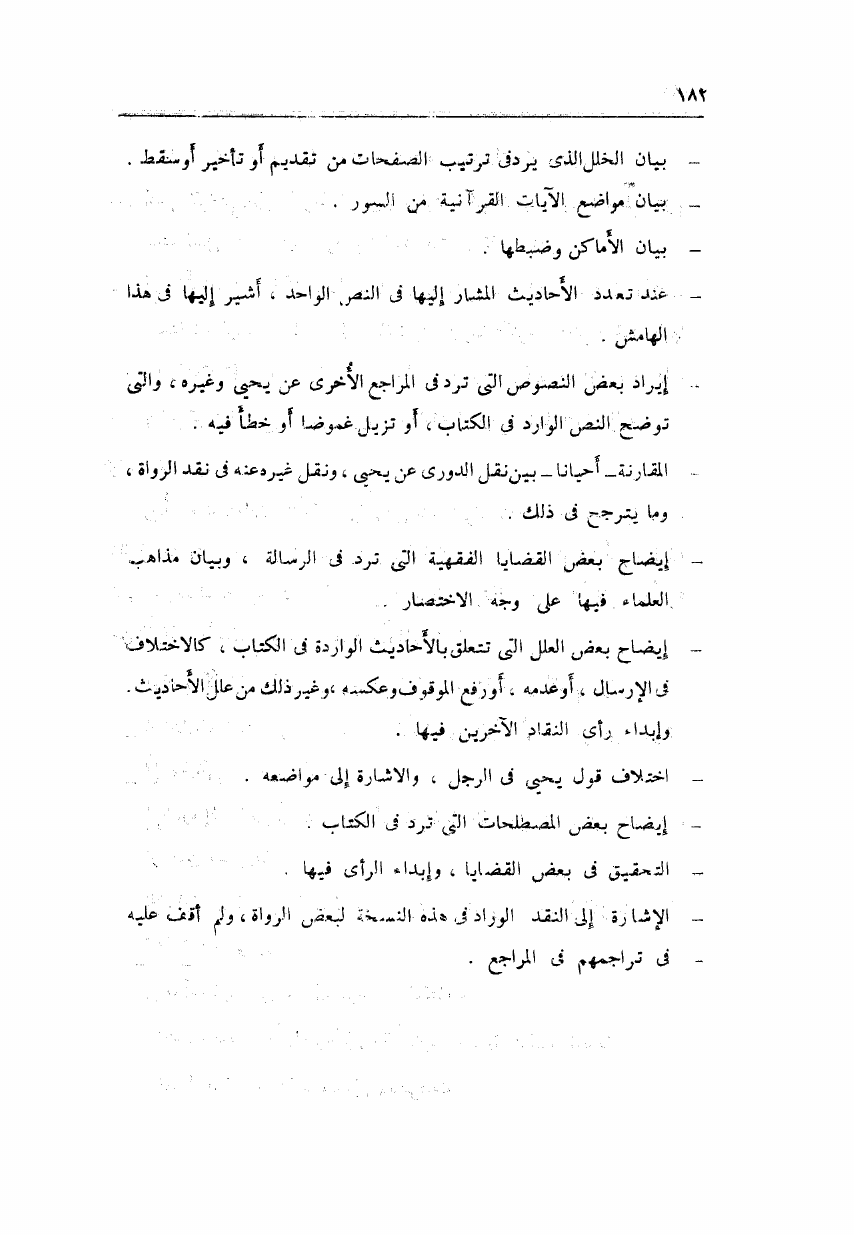 ١٨٢
– بيان الخلل الذى يرد فى ترتيب الصفحات من تقديم أو تأخير أو سقط .
– بيان مواضع الآيات القرآنية من السور .
– بيان الأماكن وضبطها .
– عند تعدد الأحاديث المشار إليها فى النص الواحد ، أشير إليها فى هذا
الهامش .
– إيراد بعض النصوص التى ترد فى المراجع الأُخرى عن يحيى وغيره ، والتى
توضح النص الوارد فى الكتاب ، أو تزيل غموضا أو خطأ فيه .
– المقارنة – أحيانا – بين نقل الدورى عن يحيى ، ونقل غيره عنه فى نقد الرواة ،
وما يترجح فى ذلك .
– إيضاح بعض القضايا الفقهية التى ترد فى الرسالة ، وبيان مذاهب
العلماء فيها على وجه الاختصار .
– إيضاح بعض العلل التى تتعلق بالأحاديث الواردة فى الكتاب ، كالاختلاف
فى الإرسال ، أو عدمه ، أو رفع الموقوف وعكسه ، وغير ذلك من علل الأحاديث .
وإبداء رأى النقاد الآخرين فيها .
– اختلاف قول يحيى فى الرجل ، والاشارة إلى مواضعه .
– إيضاح بعض المصطلحات التى ترد فى الكتاب .
– التحقيق فى بعض القضايا ، وإبداء الرأى فيها .
– الإشارة إلى النقد الوراد فى هذه النسخة لبعض الرواة ، ولم أقف عليه
– فى تراجمهم فى المراجع .